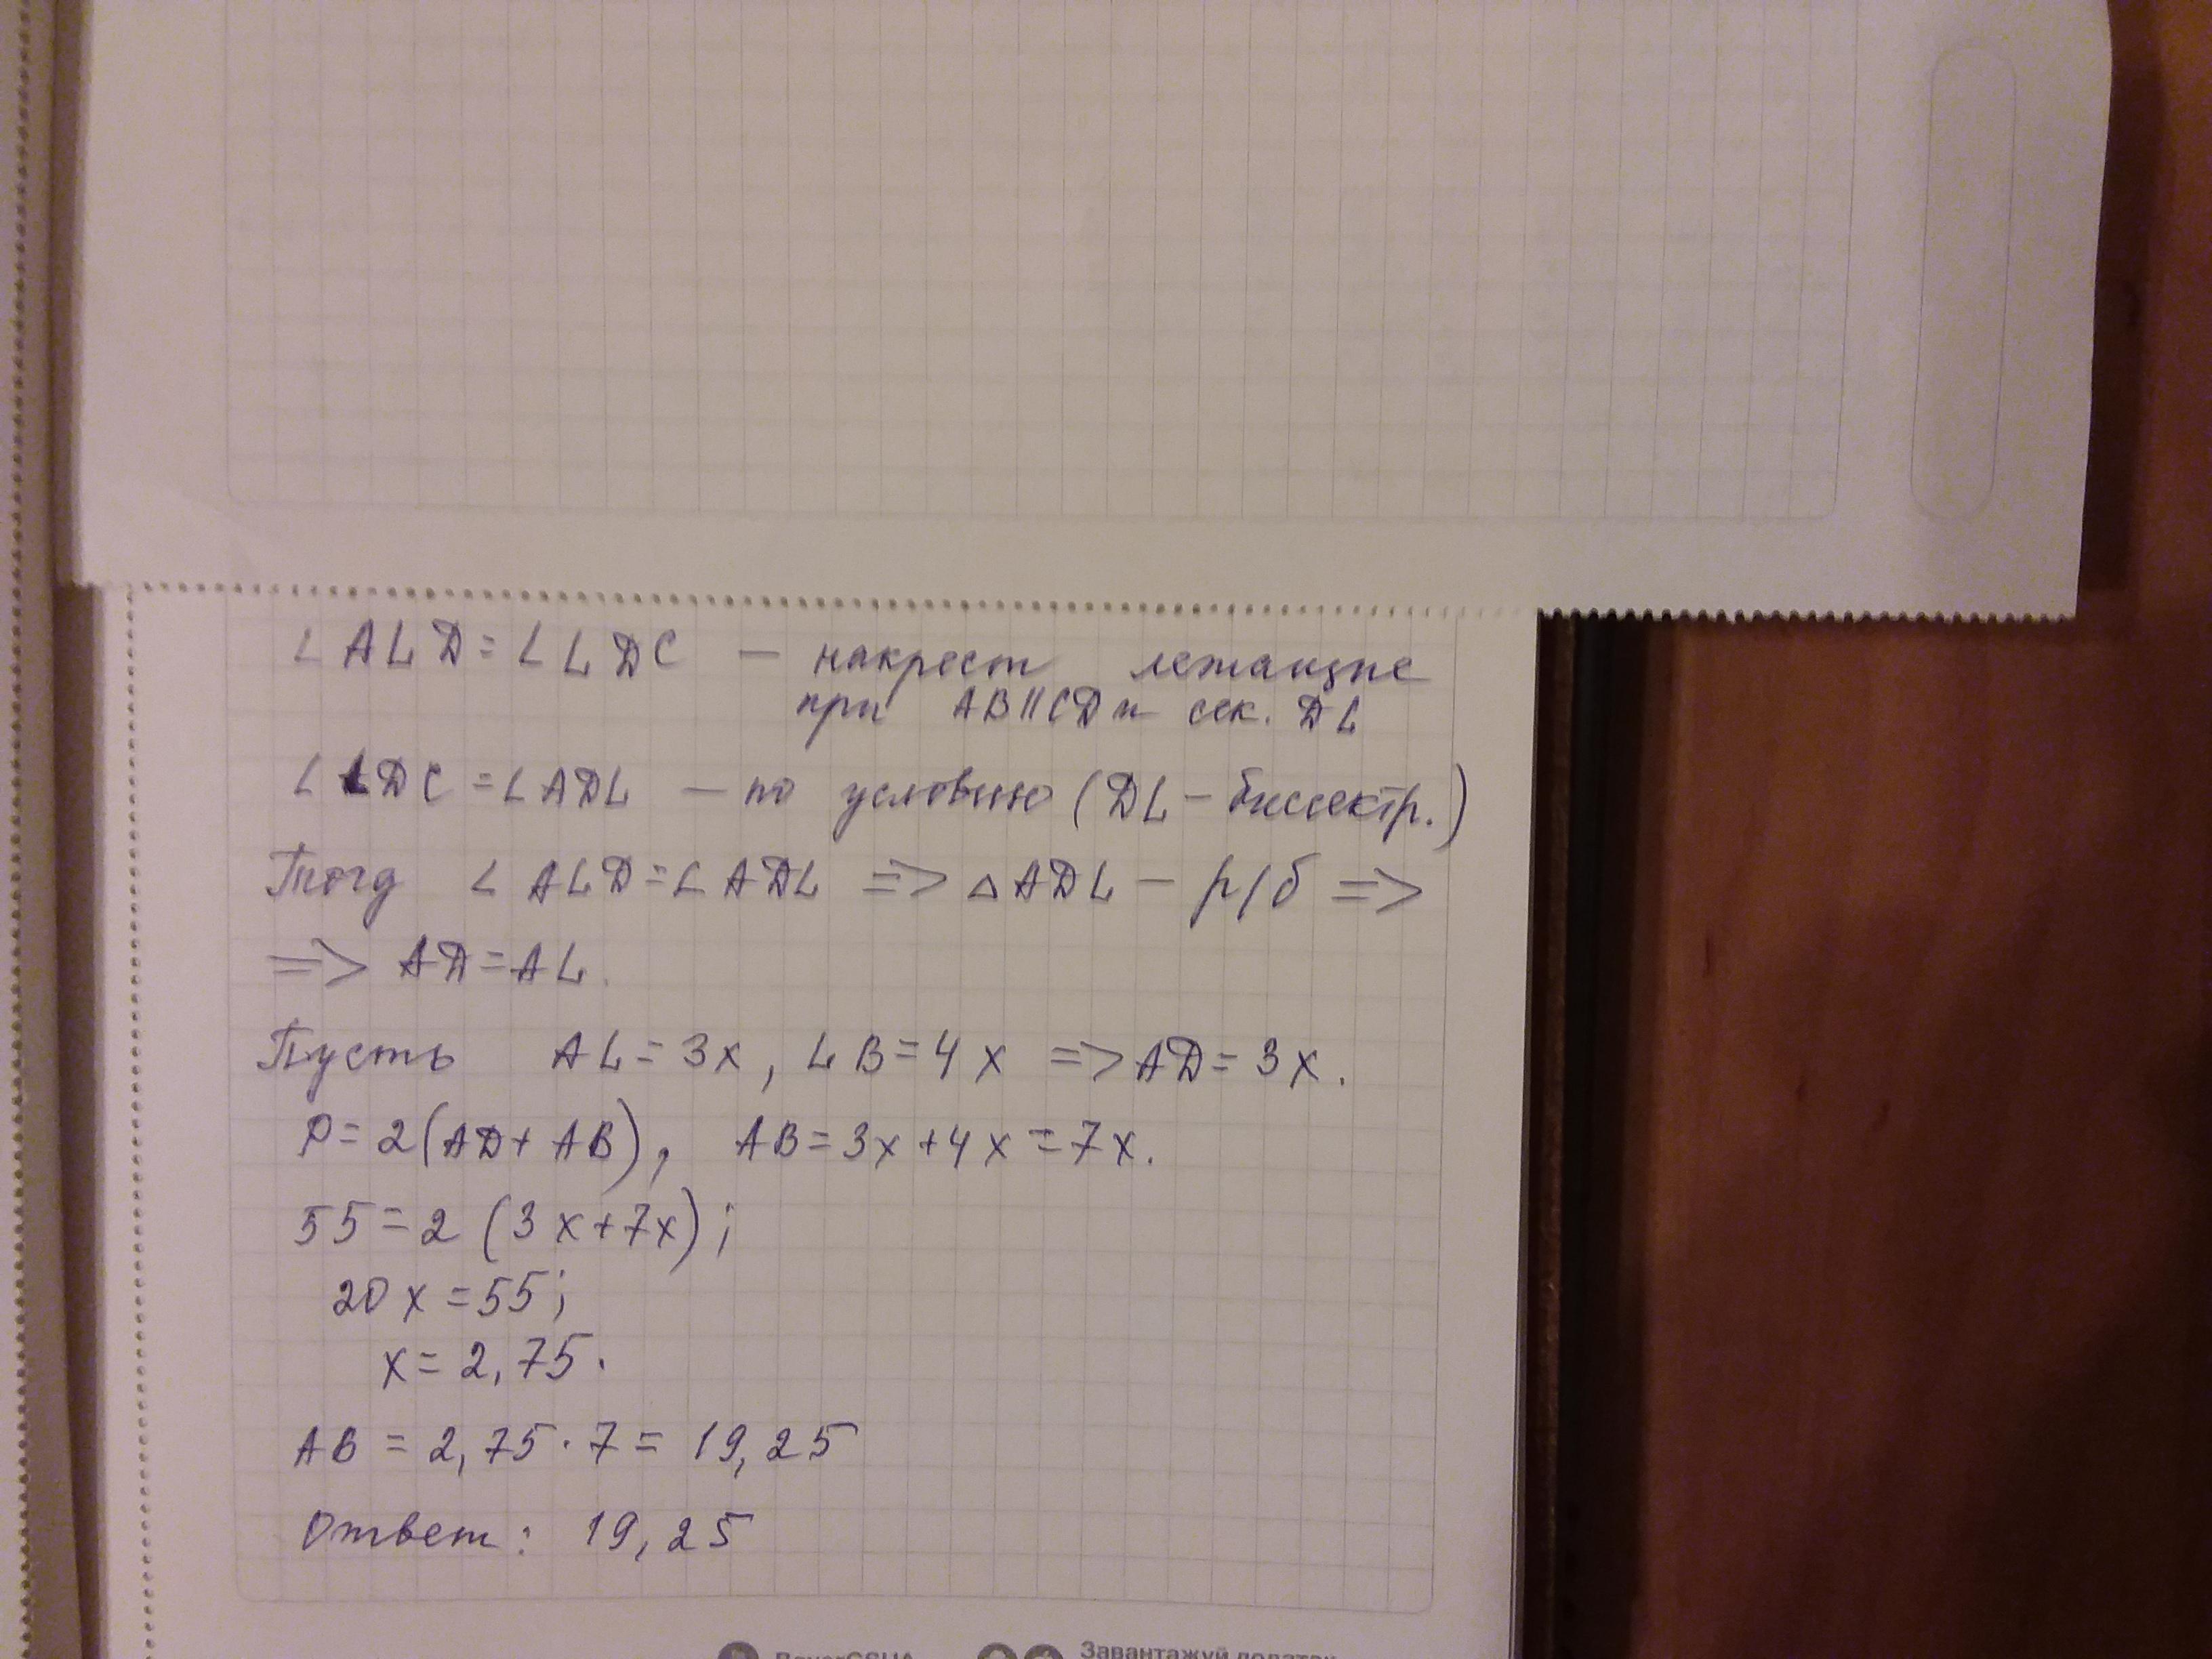 ∠ALD=∠LDC — накрест лежащие
при AB||CD и сек. DL
∠LDC=∠ADL — по условию (DL – биссектр.)
Тогд ∠ALD=∠ADL => △ADL – р/б =>
=> AD=AL.
Пусть AL=3x, LB=4x => AD=3x.
P=2(AD+AB), AB=3x+4x=7x.
55=2(3x+7x);
20x=55;
x=2,75.
AB=2,75·7=19,25
Ответ: 19,25
Завантажуй додаток